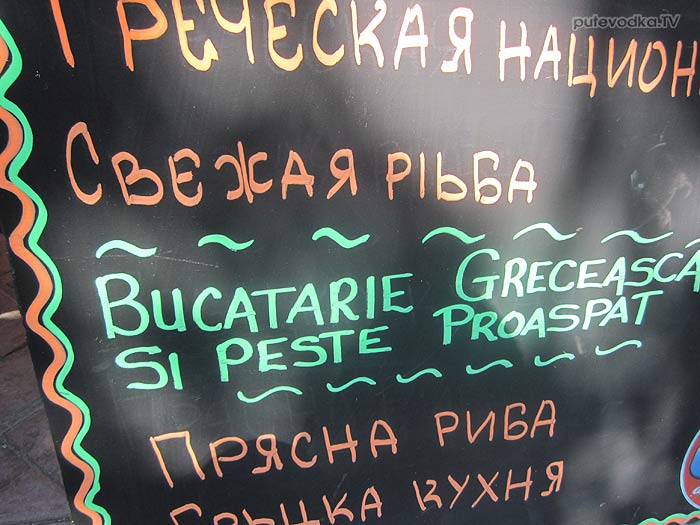 putevodka.TV
ГРЕЧЕСКАЯ НАЦИОН
СВЕЖАЯ РІЬБА
BUCATARIE GRECEASCA
SI PESTE PROASPAT
ПРЯСНА РИБА
ГРЪЦКА КУХНЯ